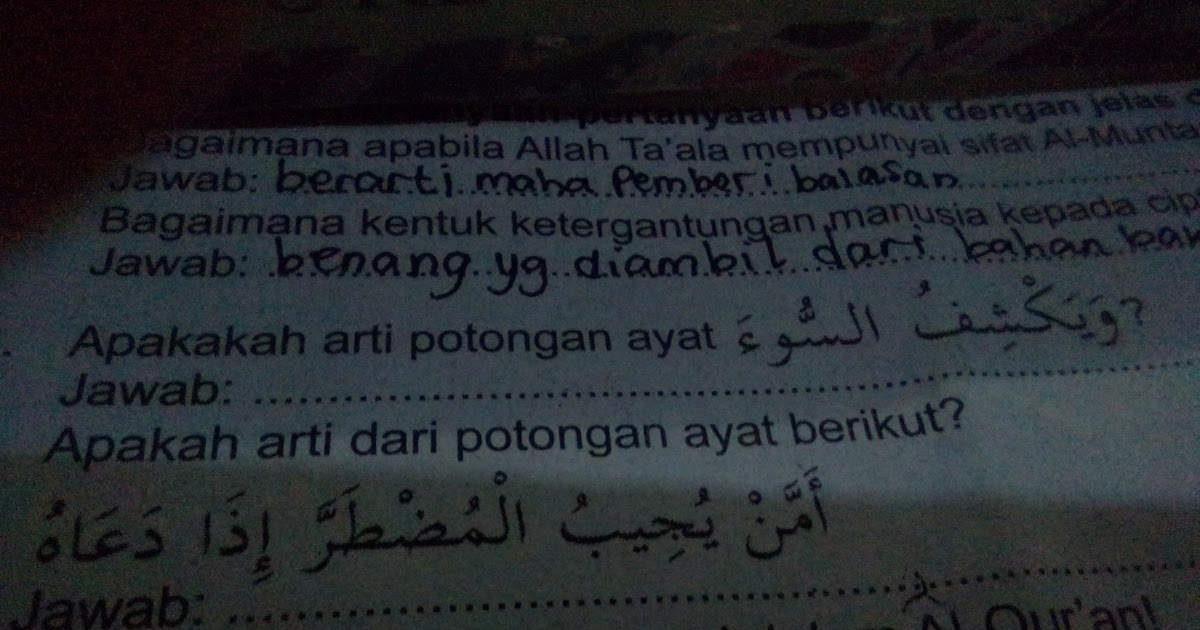 pertanyaan berikut dengan jelas
agaimana apabila Allah Ta'ala mempunyai sifat
Jawab: berarti maha Pemberi balasan
Bagaimana kentuk ketergantungan manusia kepada
Jawab: benang yg diambil dari bahan
Apakakah arti potongan ayat وَيَكْشِفُ السُّوءَ?
Jawab:
Apakah arti dari potongan ayat berikut?
أَمَّنْ يُجِيبُ الْمُضْطَرَّ إِذَا دَعَاهُ
Jawab:
Al Qur'an!